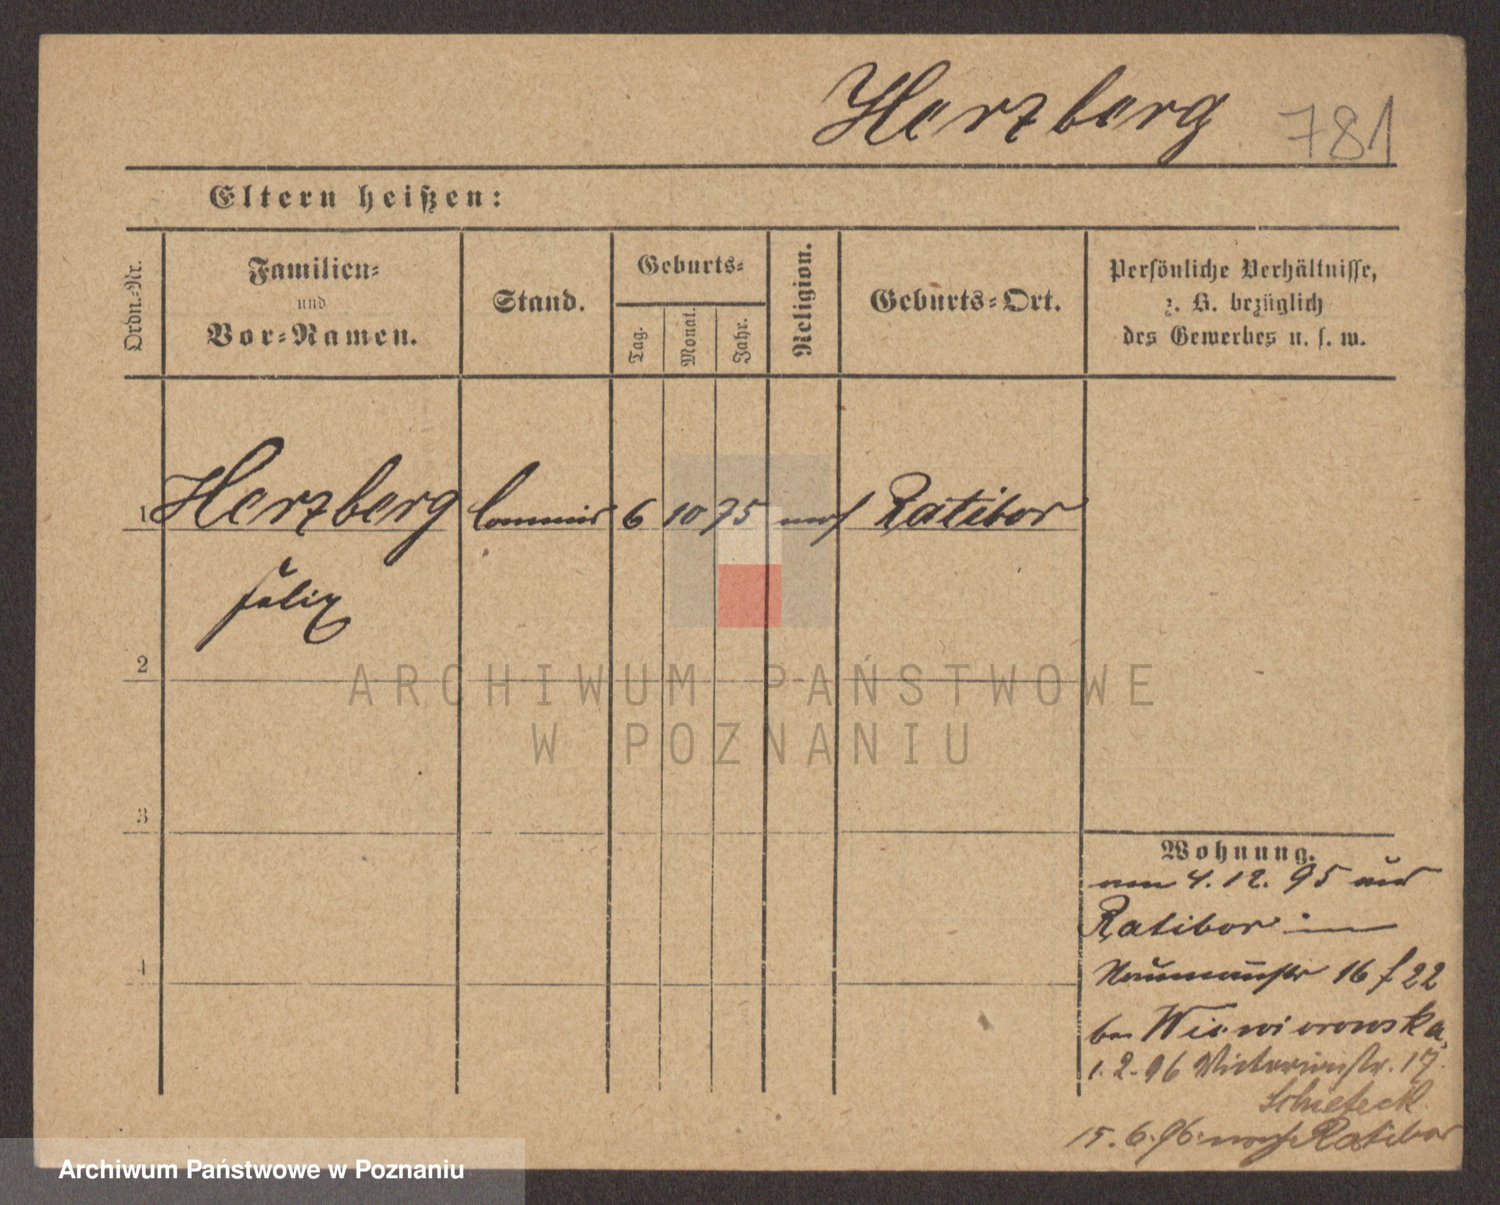 Herzberg 781
Eltern heißen:
Ordn.-Nr.
Familien-
und
Vor-Namen.
Stand.
Geburts-
Tag.
Monat.
Jahr.
Religion.
Geburts-Ort.
Persönliche Verhältnisse,
z. B. bezüglich
des Gewerbes u. s. w.
1 Herzberg Commis 6 10 75 mos Ratibor
Felix
2
ARCHIWUM PAŃSTWOWE
W POZNANIU
3
4
Wohnung.
am 4. 12. 95 aus
Ratibor in
Naumannstr 16 f 22
bei Wiewiorowska
1. 2. 96 Victoriastr. 17.
15. 6. 96. nach Ratibor
Archiwum Państwowe w Poznaniu